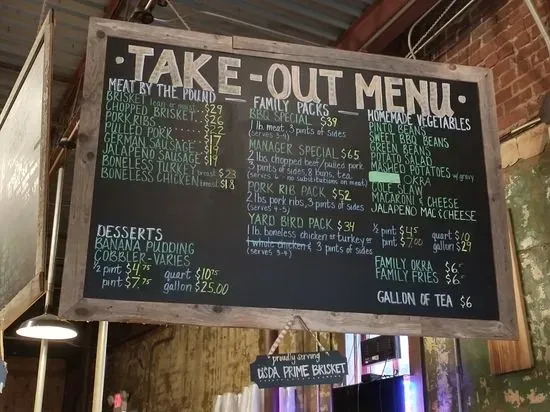 TAKE-OUT MENU
MEAT BY THE POUND
BRISKET lean or moist $29
CHOPPED BRISKET $26
PORK RIBS $22
PULLED PORK $22
GERMAN SAUSAGE $17
JALAPENO SAUSAGE $19
BONELESS TURKEY breast $23
BONELESS CHICKEN breast $18
DESSERTS
BANANA PUDDING
COBBLER-VARIES
½ pint $4.75 quart $10.75
pint $7.75 gallon $25.00
FAMILY PACKS
BBQ SPECIAL $39
1 lb. meat, 3 pints of sides
(serves 3-4)
MANAGER SPECIAL $65
2 lbs chopped beef/pulled pork
3 pints of sides, 8 buns, tea
(serves 6 - no substitutions on meat)
PORK RIB PACK $52
2 lbs pork ribs, 3 pints of sides
(serves 4-5)
YARD BIRD PACK $34
1 lb. boneless chicken or turkey or
1 whole chicken & 3 pints of sides
(serves 3-4)
HOMEMADE VEGETABLES
PINTO BEANS
SWEET BBQ BEANS
GREEN BEANS
POTATO SALAD
MASHED POTATOES w/ gravy
OKRA
COLE SLAW
MACARONI & CHEESE
JALAPENO MAC & CHEESE
½ pint $4.5 quart $10
pint $7.00 gallon $29
FAMILY OKRA $6
FAMILY FRIES $6
GALLON OF TEA $6
proudly serving
USDA PRIME BRISKET